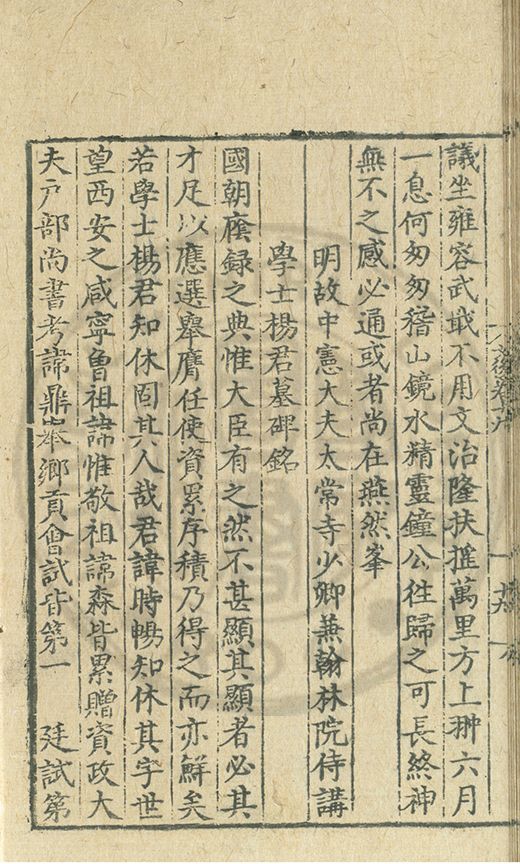 議坐雍容武戢不用文治隆扶搖萬里方上翀六月
一息何匆匆稽山鏡水精靈鐘公徃歸之可長終神
無不之感必通或者尚在燕然峯
明故中憲大夫太常寺少卿兼翰林院侍講
學士楊君墓碑銘
國朝廕録之典惟大臣有之然不甚顯其顯者必其
才足以應選舉膺任使資累序積乃得之而亦鮮矣
若學士楊君知休固其人哉君諱時暢知休其字世
望西安之咸寧曾祖諱惟敬祖諱森皆累贈資政大
夫戶部尚書考諱鼎舉鄉貢會試皆第一　廷試第